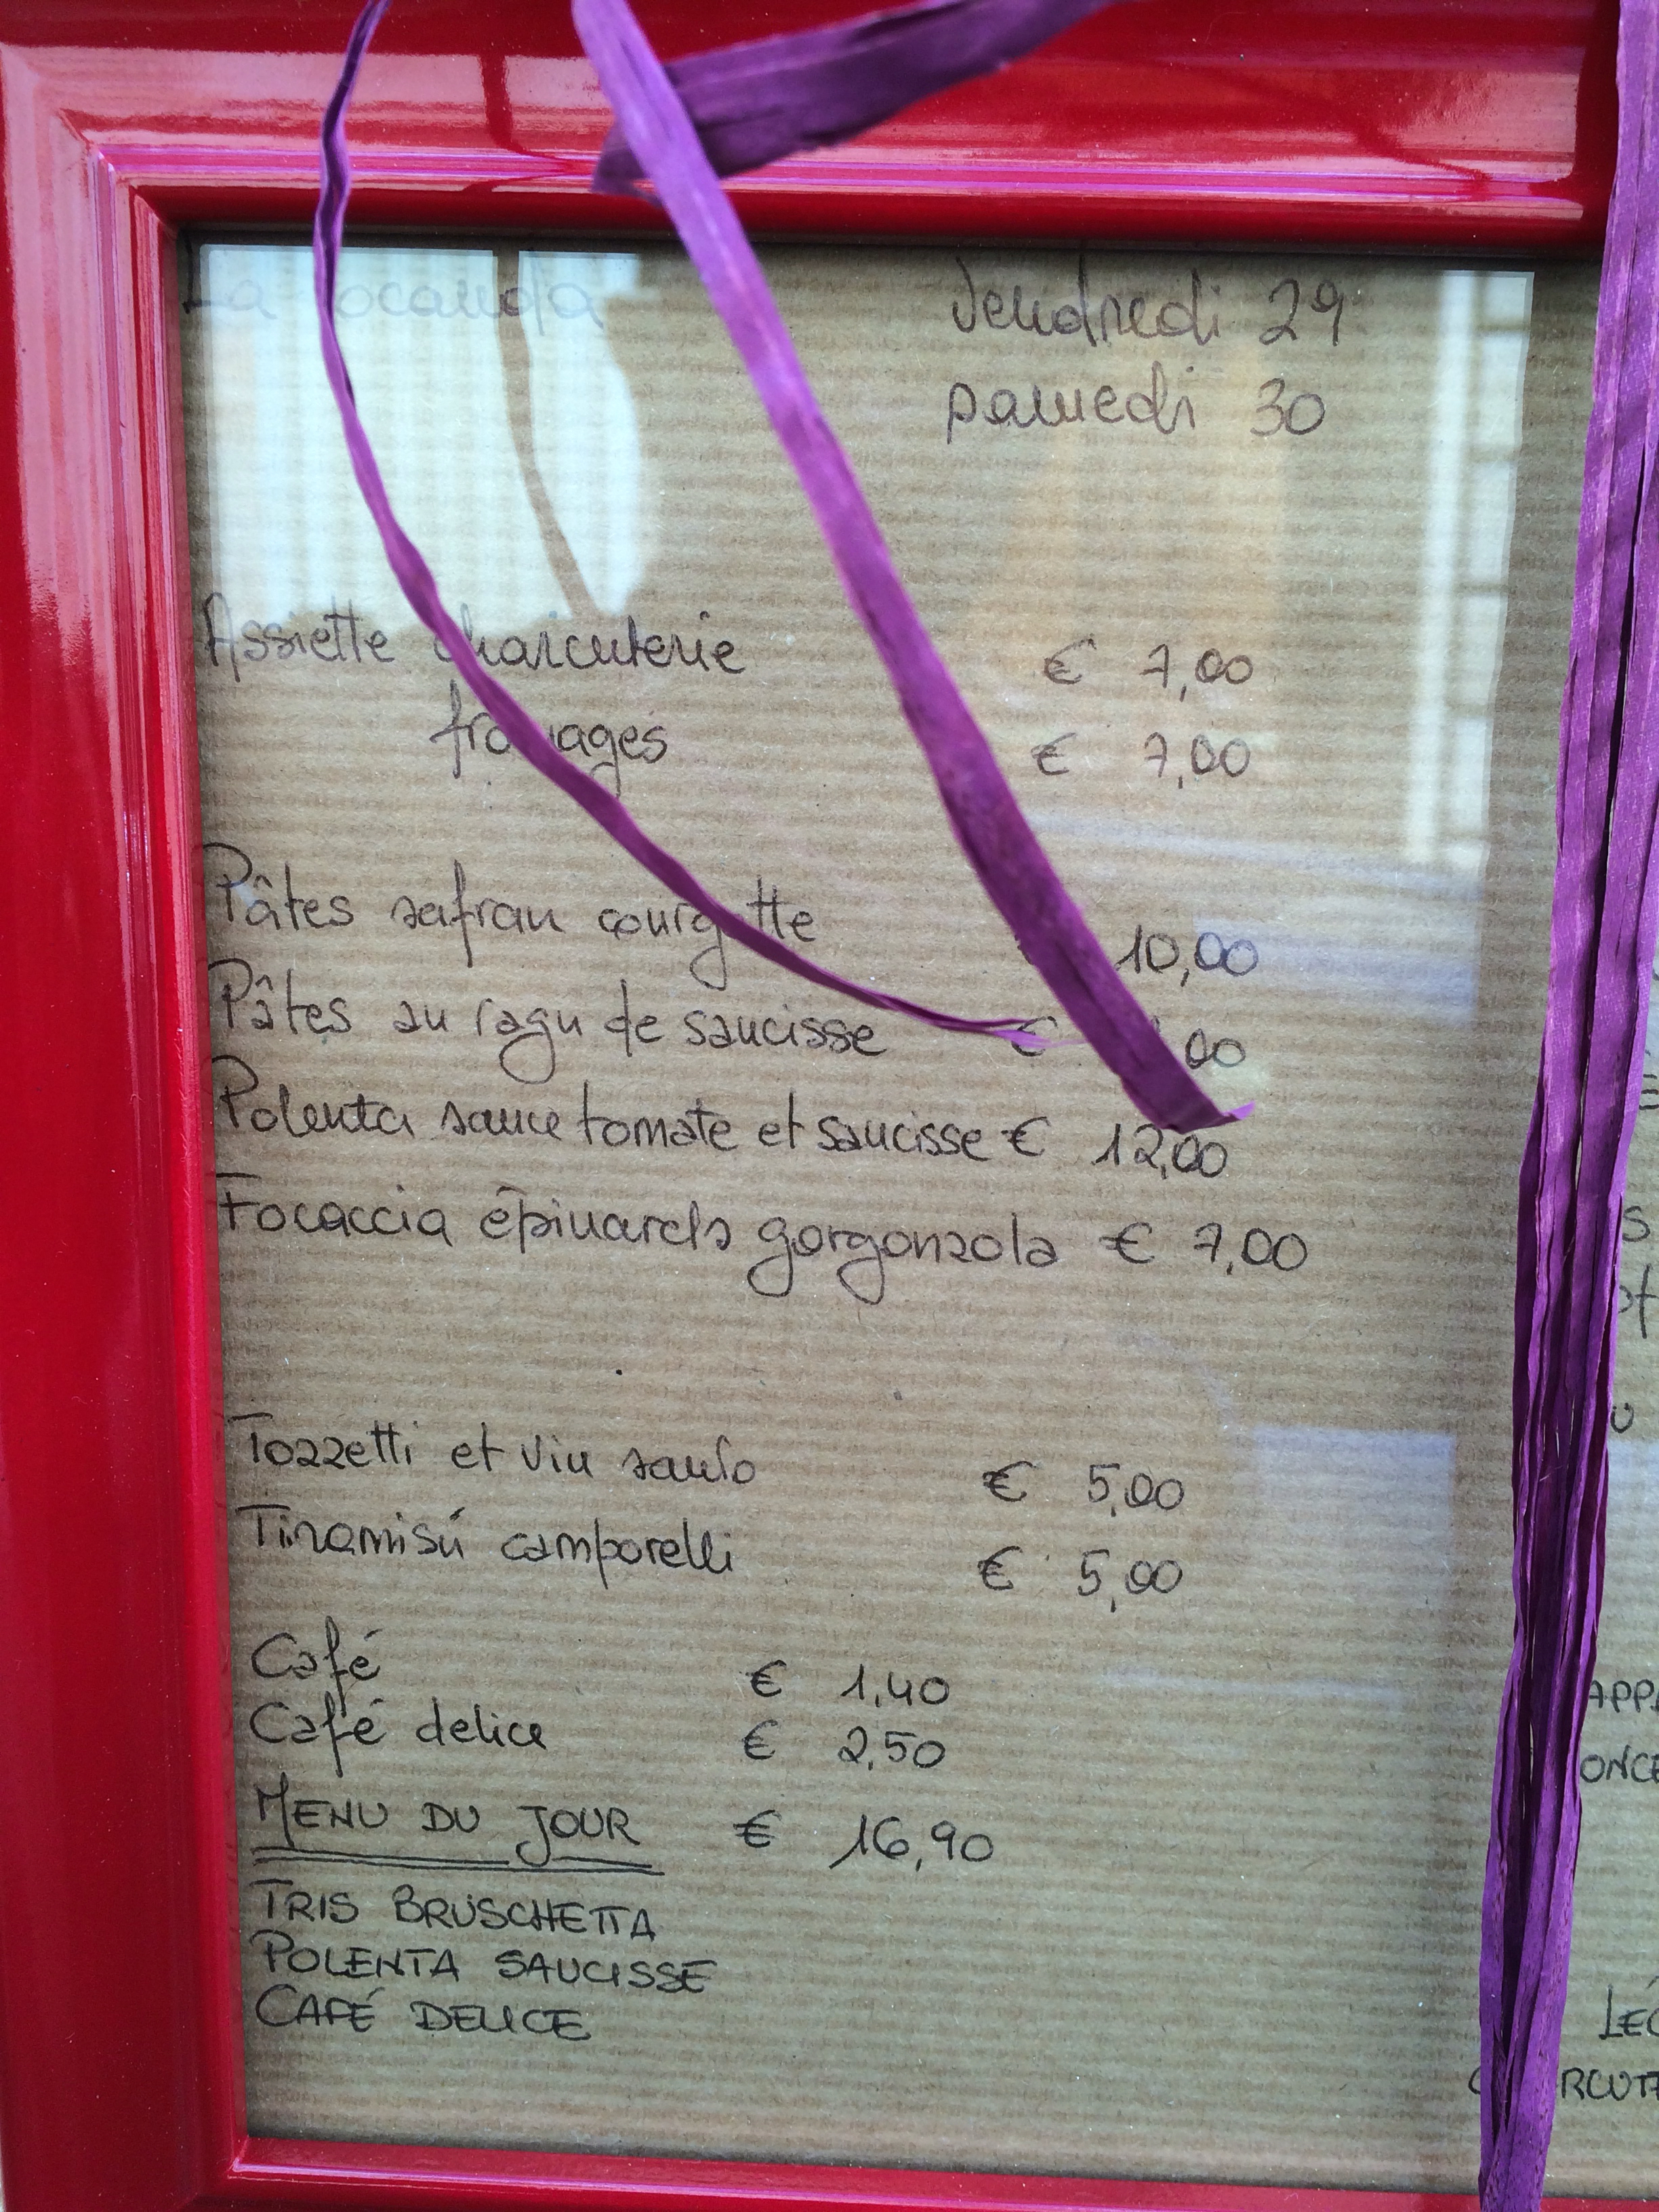 La Locanda
Vendredi 29
samedi 30
Assiette charcuterie € 7,00
fromages € 7,00
Pâtes safran courgette 10,00
Pâtes au ragu de saucisse €
Polenta sauce tomate et saucisse € 12,00
Focaccia épinards gorgonzola € 7,00
Tozzetti et vin santo € 5,00
Tiramisú camporelli € 5,00
Café € 1,40
Café delice € 2,50
MENU DU JOUR € 16,90
TRIS BRUSCHETTA
POLENTA SAUCISSE
CAFÉ DELICE